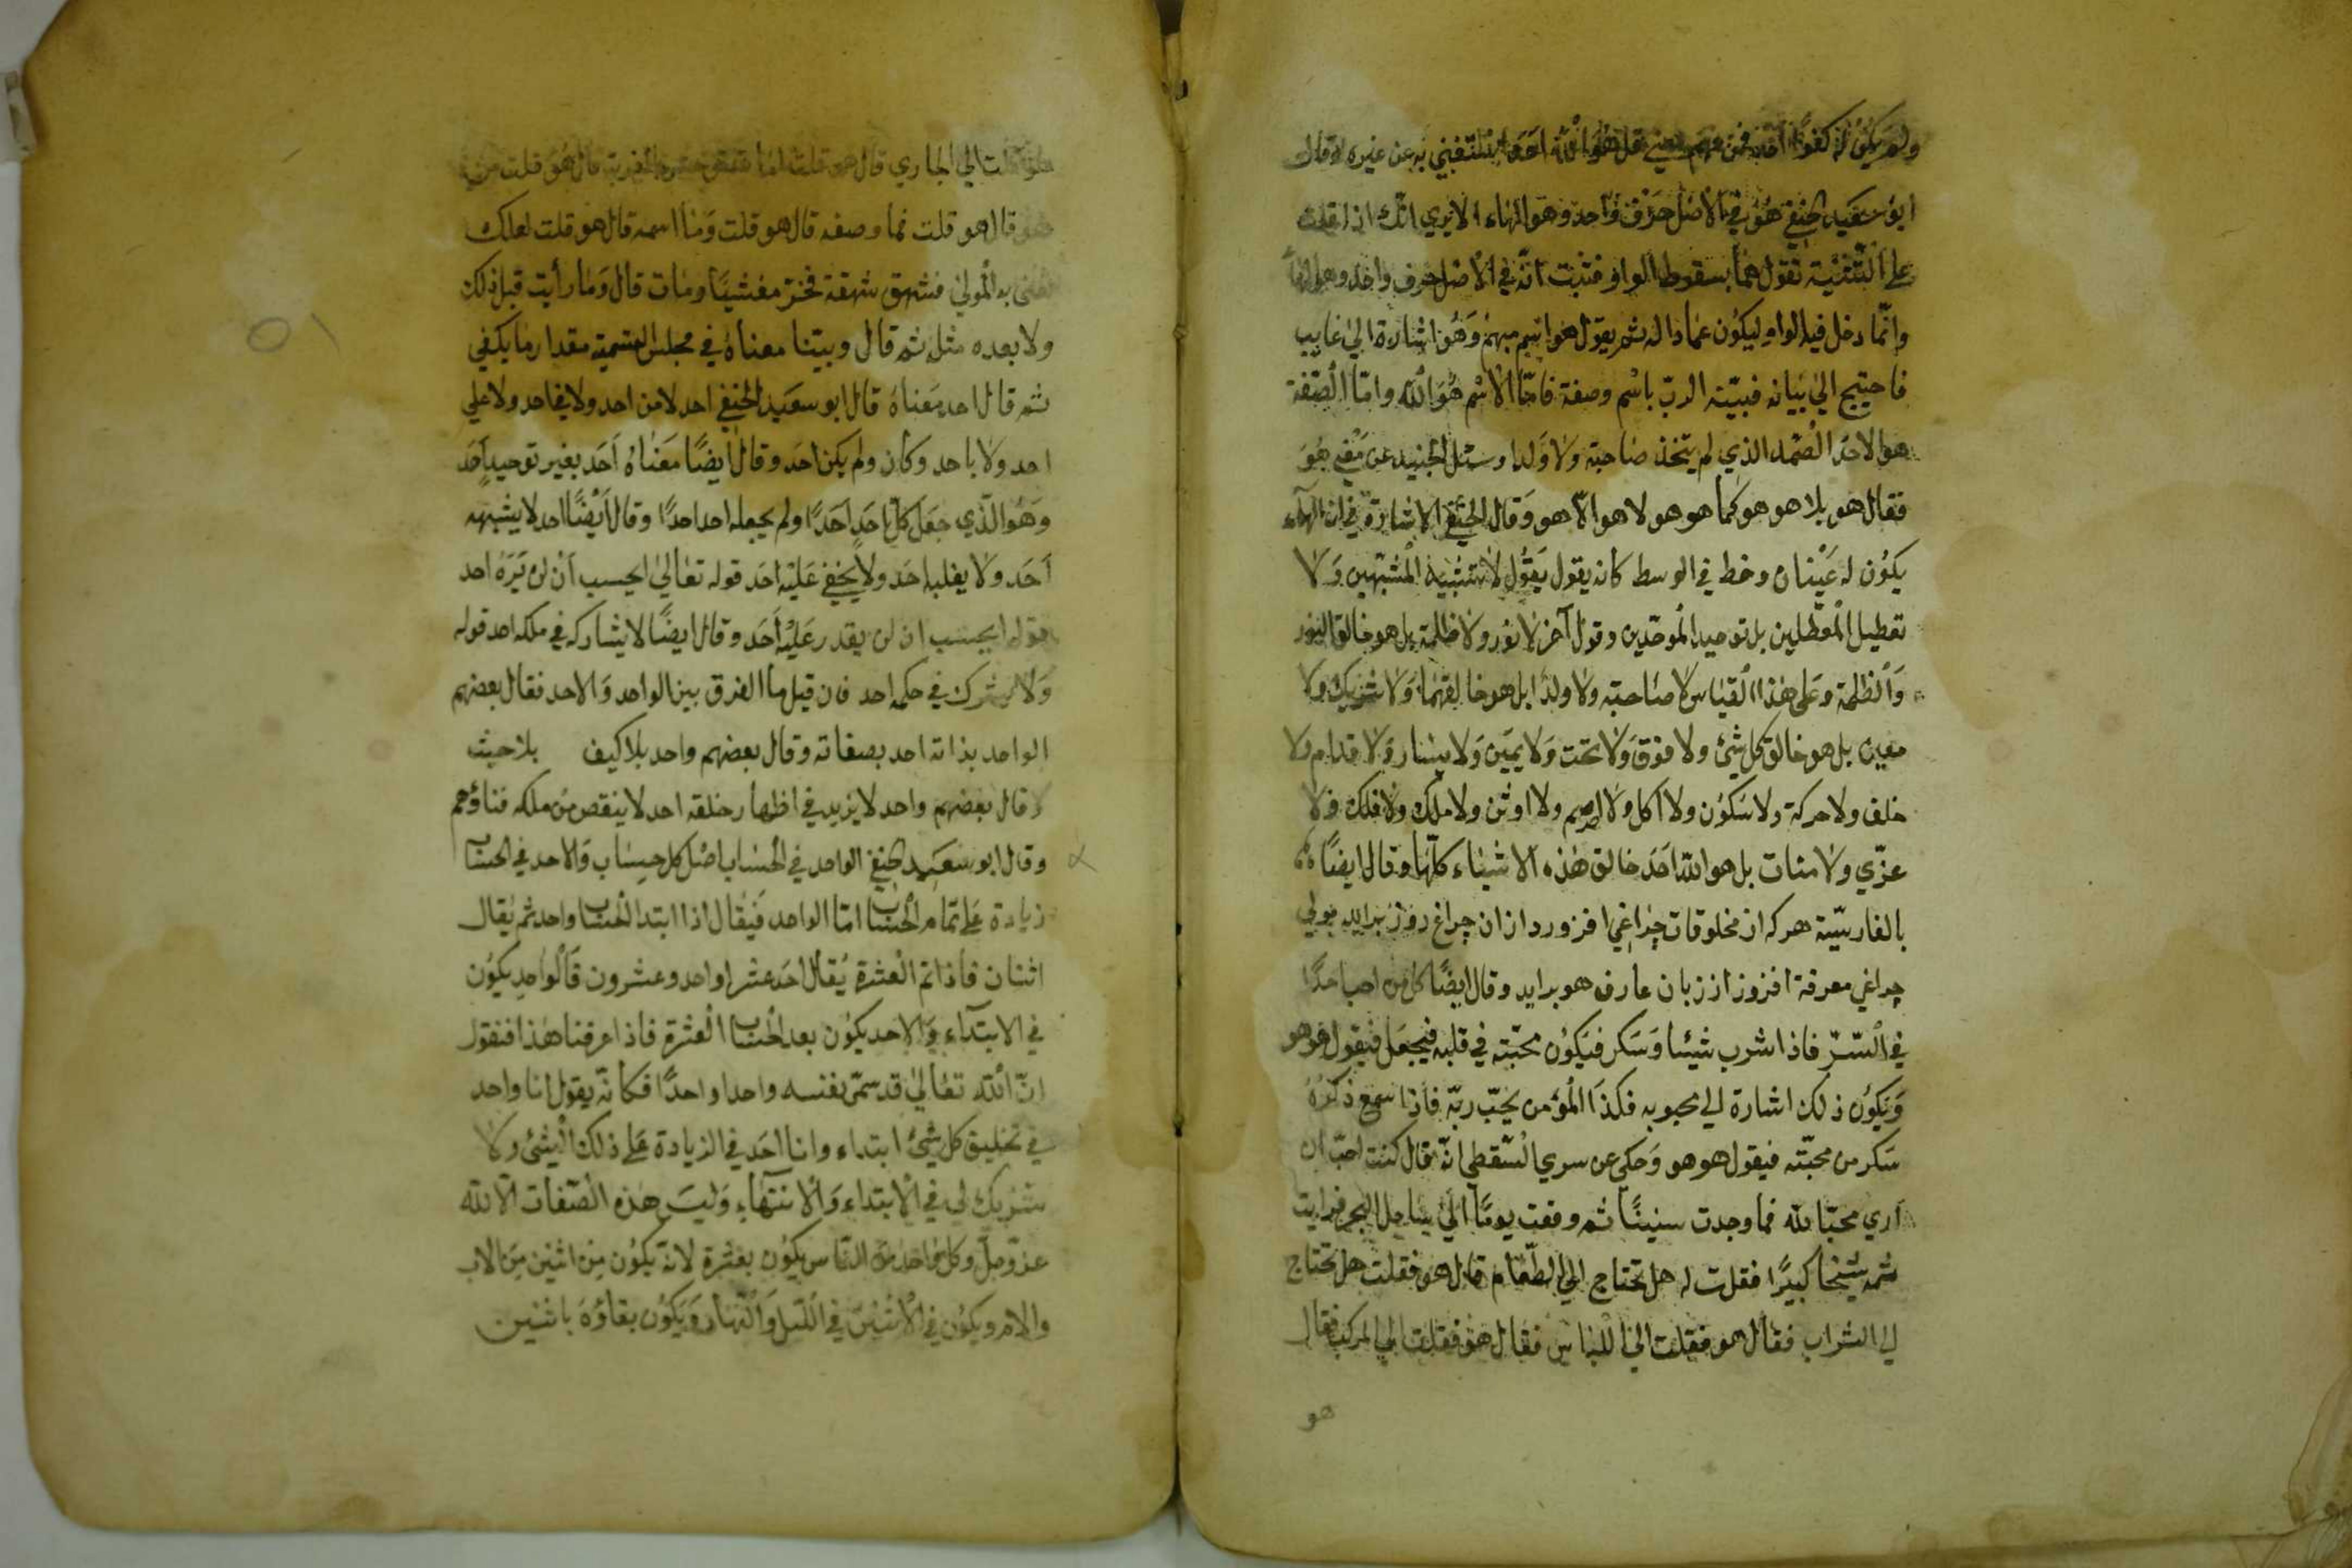 ولم يكن له كفوا احد فمن فهم معني قل هو الله احد استغني به عن غيره وقال
ابو سعيد الحنفي هو في الاصل حرف واحد وهو الهاء الا يري انك اذا قلت
علي التثنية تقول هما بسقوط الواو فثبت انه في الاصل حرف واحد وهو الهاء
وانما دخل فيه الواو ليكون عمادا له ثم يقول هو اسم مبهم وهو اشارة الي غايب
فاحتيج الي بيانه فبينه الرب باسم وصفة فامّا الاسم هو الله وامّا الصفة
هو الاحد الصمد الذي لم يتخذ صاحبة ولا ولدا وسئل الجنيد عن معني هو
فقال هو بلا هو هو كما هو هو لا هو الّا هو وقال الحنفي الاشارة في ان الهاء
يكون له عينان وخط في الوسط كانه يقول يقول لا تشبيه المشبهين ولا
تعطيل المعطلين بل توحيد الموحّدين وقول آخر لا نور ولا ظلمة بل هو خالق النور
والظلمة وعلي هذا القياس لا صاحبة ولا ولدا بل هو خالقهما ولا شريك ولا
معين بل هو خالق كل شئ ولا فوق ولا تحت ولا يمين ولا يسار ولا قدام ولا
خلف ولا حركة ولا سكون ولا اكل ولا ولا اوثن ولا ملك ولا فلك ولا
عزّي ولا منات بل هو الله احد خالق هذه الاشياء كلها وقال ايضًا
بالفارسيّة هركه از مخلوقات چراغي افزورد از ان چراغ روز برايد بولي
چراغي معرفة افزوز از زبان عارف هو برايد وقال ايضًا كل من احب احدًا
في السّرّ فاذا شرب شيئا وسكر فيكون محبّته في قلبه فيجعل فيقول هو هو
ويكون ذلك اشارة الي محبوبه فكذا المؤمن يحبّ ربّه فاذا سمع ذكره
سكر من محبّته فيقول هو هو وحكي عن سري السقطي انّه قال كنت احبّ ان
اري محبّا لله فما وجدت سنينًا ثم وقفت يومًا الي ساحل البحر فرايت
ثمه شيخا كبيرًا فقلت له هل تحتاج الي الطّعام قال هو فقلت هل تحتاج
الي الشراب فقال هو فقلت الي اللباس فقال هو فقلت الي المركب فقال
هو
هو قلت الي الجاري قال هو قلت قال هو قلت من
هو قال هو قلت فما وصفه قال هو قلت وما اسمه قال هو قلت لعلك
تعني به المولي فشهق شهقة فخرّ مغشيّا ومات قال وما رأيت قبل ذلك
ولا بعده مثله ثم قال وبيّنا معناه في مجلس التسمية مقدار ما يكفي
ثم قال احد معناه قال ابو سعيد الحنفي احد لا من احد ولا في احد ولا علي
احد ولا باحد وكان ولم يكن احد وقال ايضًا معناه احد بغير توحيد احد
وهو الذي جعل كل احد احدًا ولم يجعله احد احدًا وقال ايضًا احد لا يشبهه
احد ولا يغلبه احد ولا يخفي عليه احد قوله تعالي ايحسب ان لن يره احد
قوله ايحسب ان لن يقدر عليه احد وقال ايضًا لا يشاركه في ملكه احد قوله
ولا يشرك في حكمه احد فان قيل ما الفرق بين الواحد والاحد فقال بعضهم
الواحد بذاته احد بصفاته وقال بعضهم واحد بلا كيف بلا حيث
وقال بعضهم واحد لا يزيد في اظهار خلقه احد لا ينقص من ملكه فناؤهم
وقال ابو سعيد الحنفي الواحد في الحساب اصل كل حساب والاحد في الحساب
زيادة علي تمام الحساب امّا الواحد فيقال اذا ابتدا الحساب واحد ثم يقال
اثنان فاذا تم العشرة يقال احد عشر او احد وعشرون فالواحد يكون
في الابتداء والاحد يكون بعد الحساب العشرة فاذا عرفنا هذا فنقول
انّ الله تعالي قد سمّي نفسه واحدا واحدًا فكانه يقول انا واحد
في تخليق كل شئ ابتداء وانا احد في الزيادة علي ذلك الشئ ولا
شريك لي في الابتداء والانتهاء وليس هذه الصفات الّا لله
عزّ وجلّ وكل واحد من الناس يكون بعشرة لانه يكون من اثنين من الاب
والام ويكون في الاثنين في الليل والنهار ويكون بقاؤه باثنين